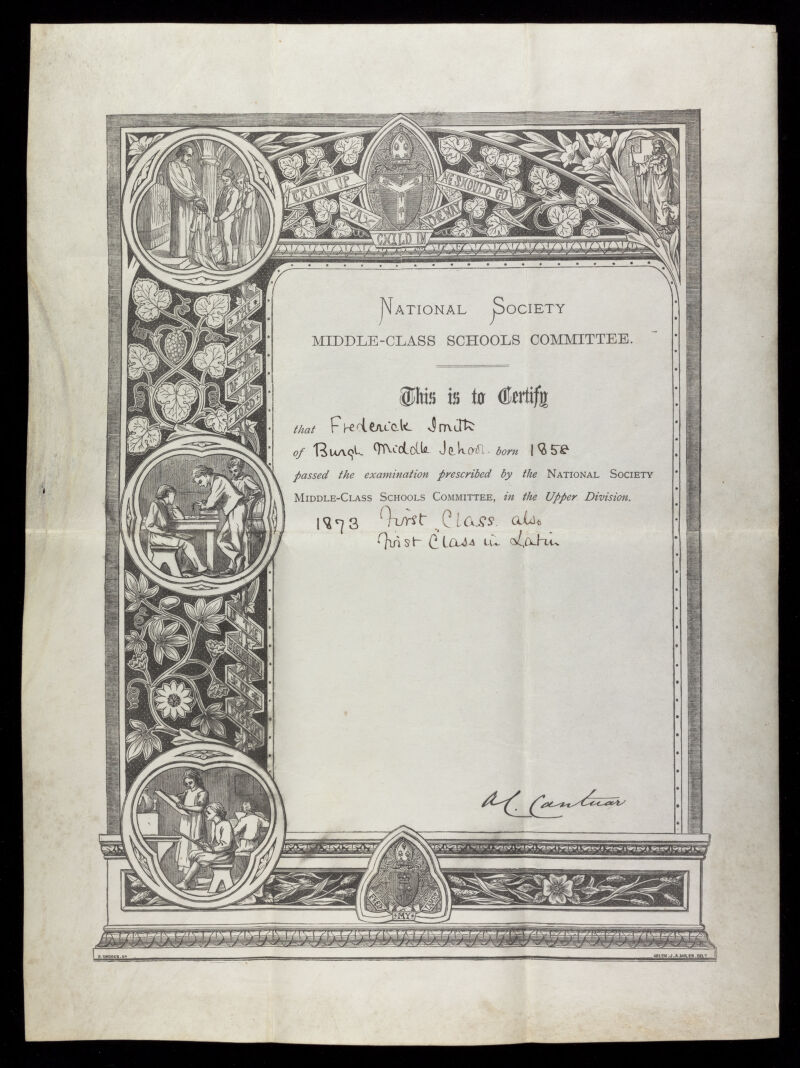 TRAIN UP
A
CHILD IN
THE WAY
HE SHOULD GO
NATIONAL SOCIETY
MIDDLE-CLASS SCHOOLS COMMITTEE.
This is to Certify
that Frederick Smith
of Burgh Middle School born 1858
passed the examination prescribed by the NATIONAL SOCIETY
MIDDLE-CLASS SCHOOLS COMMITTEE, in the Upper Division.
1873 First Class also
First Class in Latin
A C. Cantuar
FEED
MY
LAMBS